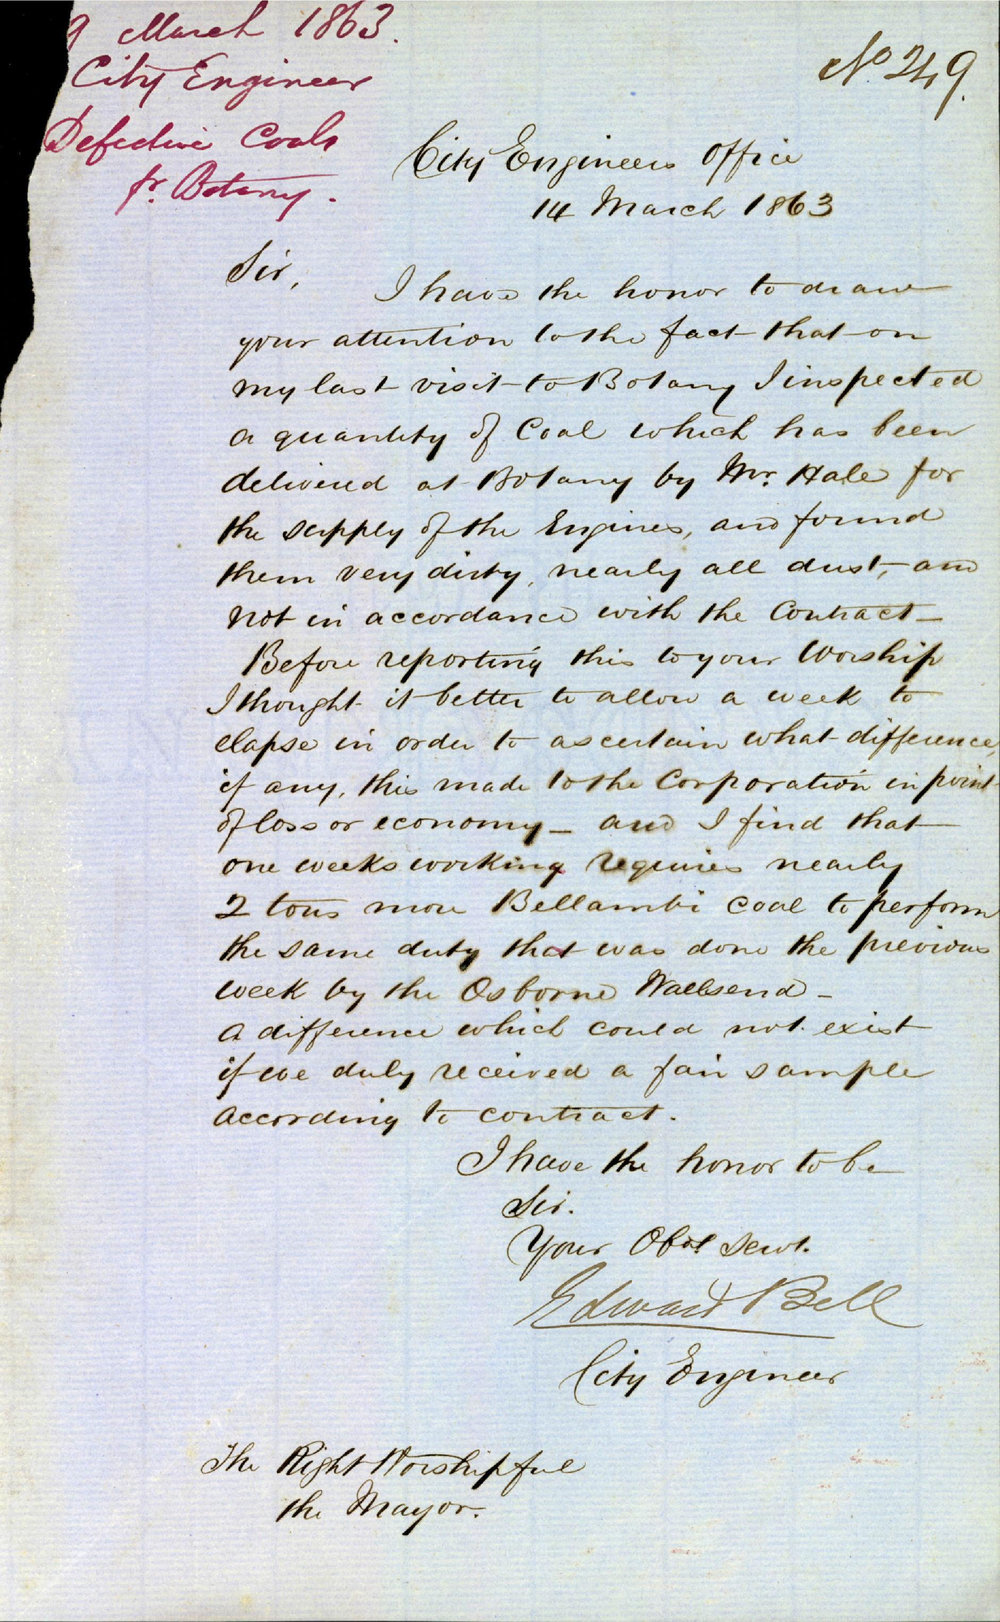 9 March 1863.
City Engineer
Defective Coals
fr. Botany.
No 249.
City Engineers Office
14 March 1863
Sir,
I have the honor to draw
your attention to the fact that on
my last visit to Botany I inspected
a quantity of Coal which has been
delivered at Botany by Mr. Hale for
the supply of the Engines, and found
them very dirty, nearly all dust, and
not in accordance with the Contract _
Before reporting this to your Worship
I thought it better to allow a week to
elapse in order to ascertain what difference,
if any, this made to the Corporation in point
of loss or economy _ and I find that
one weeks working requires nearly
2 tons more Bellambi coal to perform
the same duty that was done the previous
week by the Osborne Wallsend _
a difference which could not exist
if we duly received a fair sample
according to contract.
I have the honor to be
Sir.
Your Obdt. Servt.
Edward Bell
City Engineer
The Right Worshipful
the Mayor.